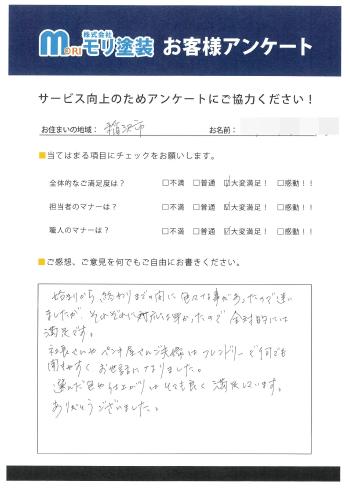 株式会社
MORI モリ塗装 お客様アンケート
サービス向上のためアンケートにご協力ください！
お住まいの地域： 稲沢市 お名前：
■当てはまる項目にチェックをお願いします。
全体的なご満足度は？ □不満 □普通 ☑大変満足！ □感動！！
担当者のマナーは？ □不満 □普通 ☑大変満足！ □感動！！
職人のマナーは？ □不満 □普通 ☑大変満足！ □感動！！
■ご感想、ご意見を何でもご自由にお書きください。
始まりから、終わりまでの間に色々な事があったので迷い
ましたが それぞれに対応が早かったので 全体的には
満足です。
社長さんやペンキ屋さんご夫婦はフレンドリーで何でも
聞きやすく お世話になりました。
選んだ色や仕上がりはとても良く 満足しています。
ありがとうございました。